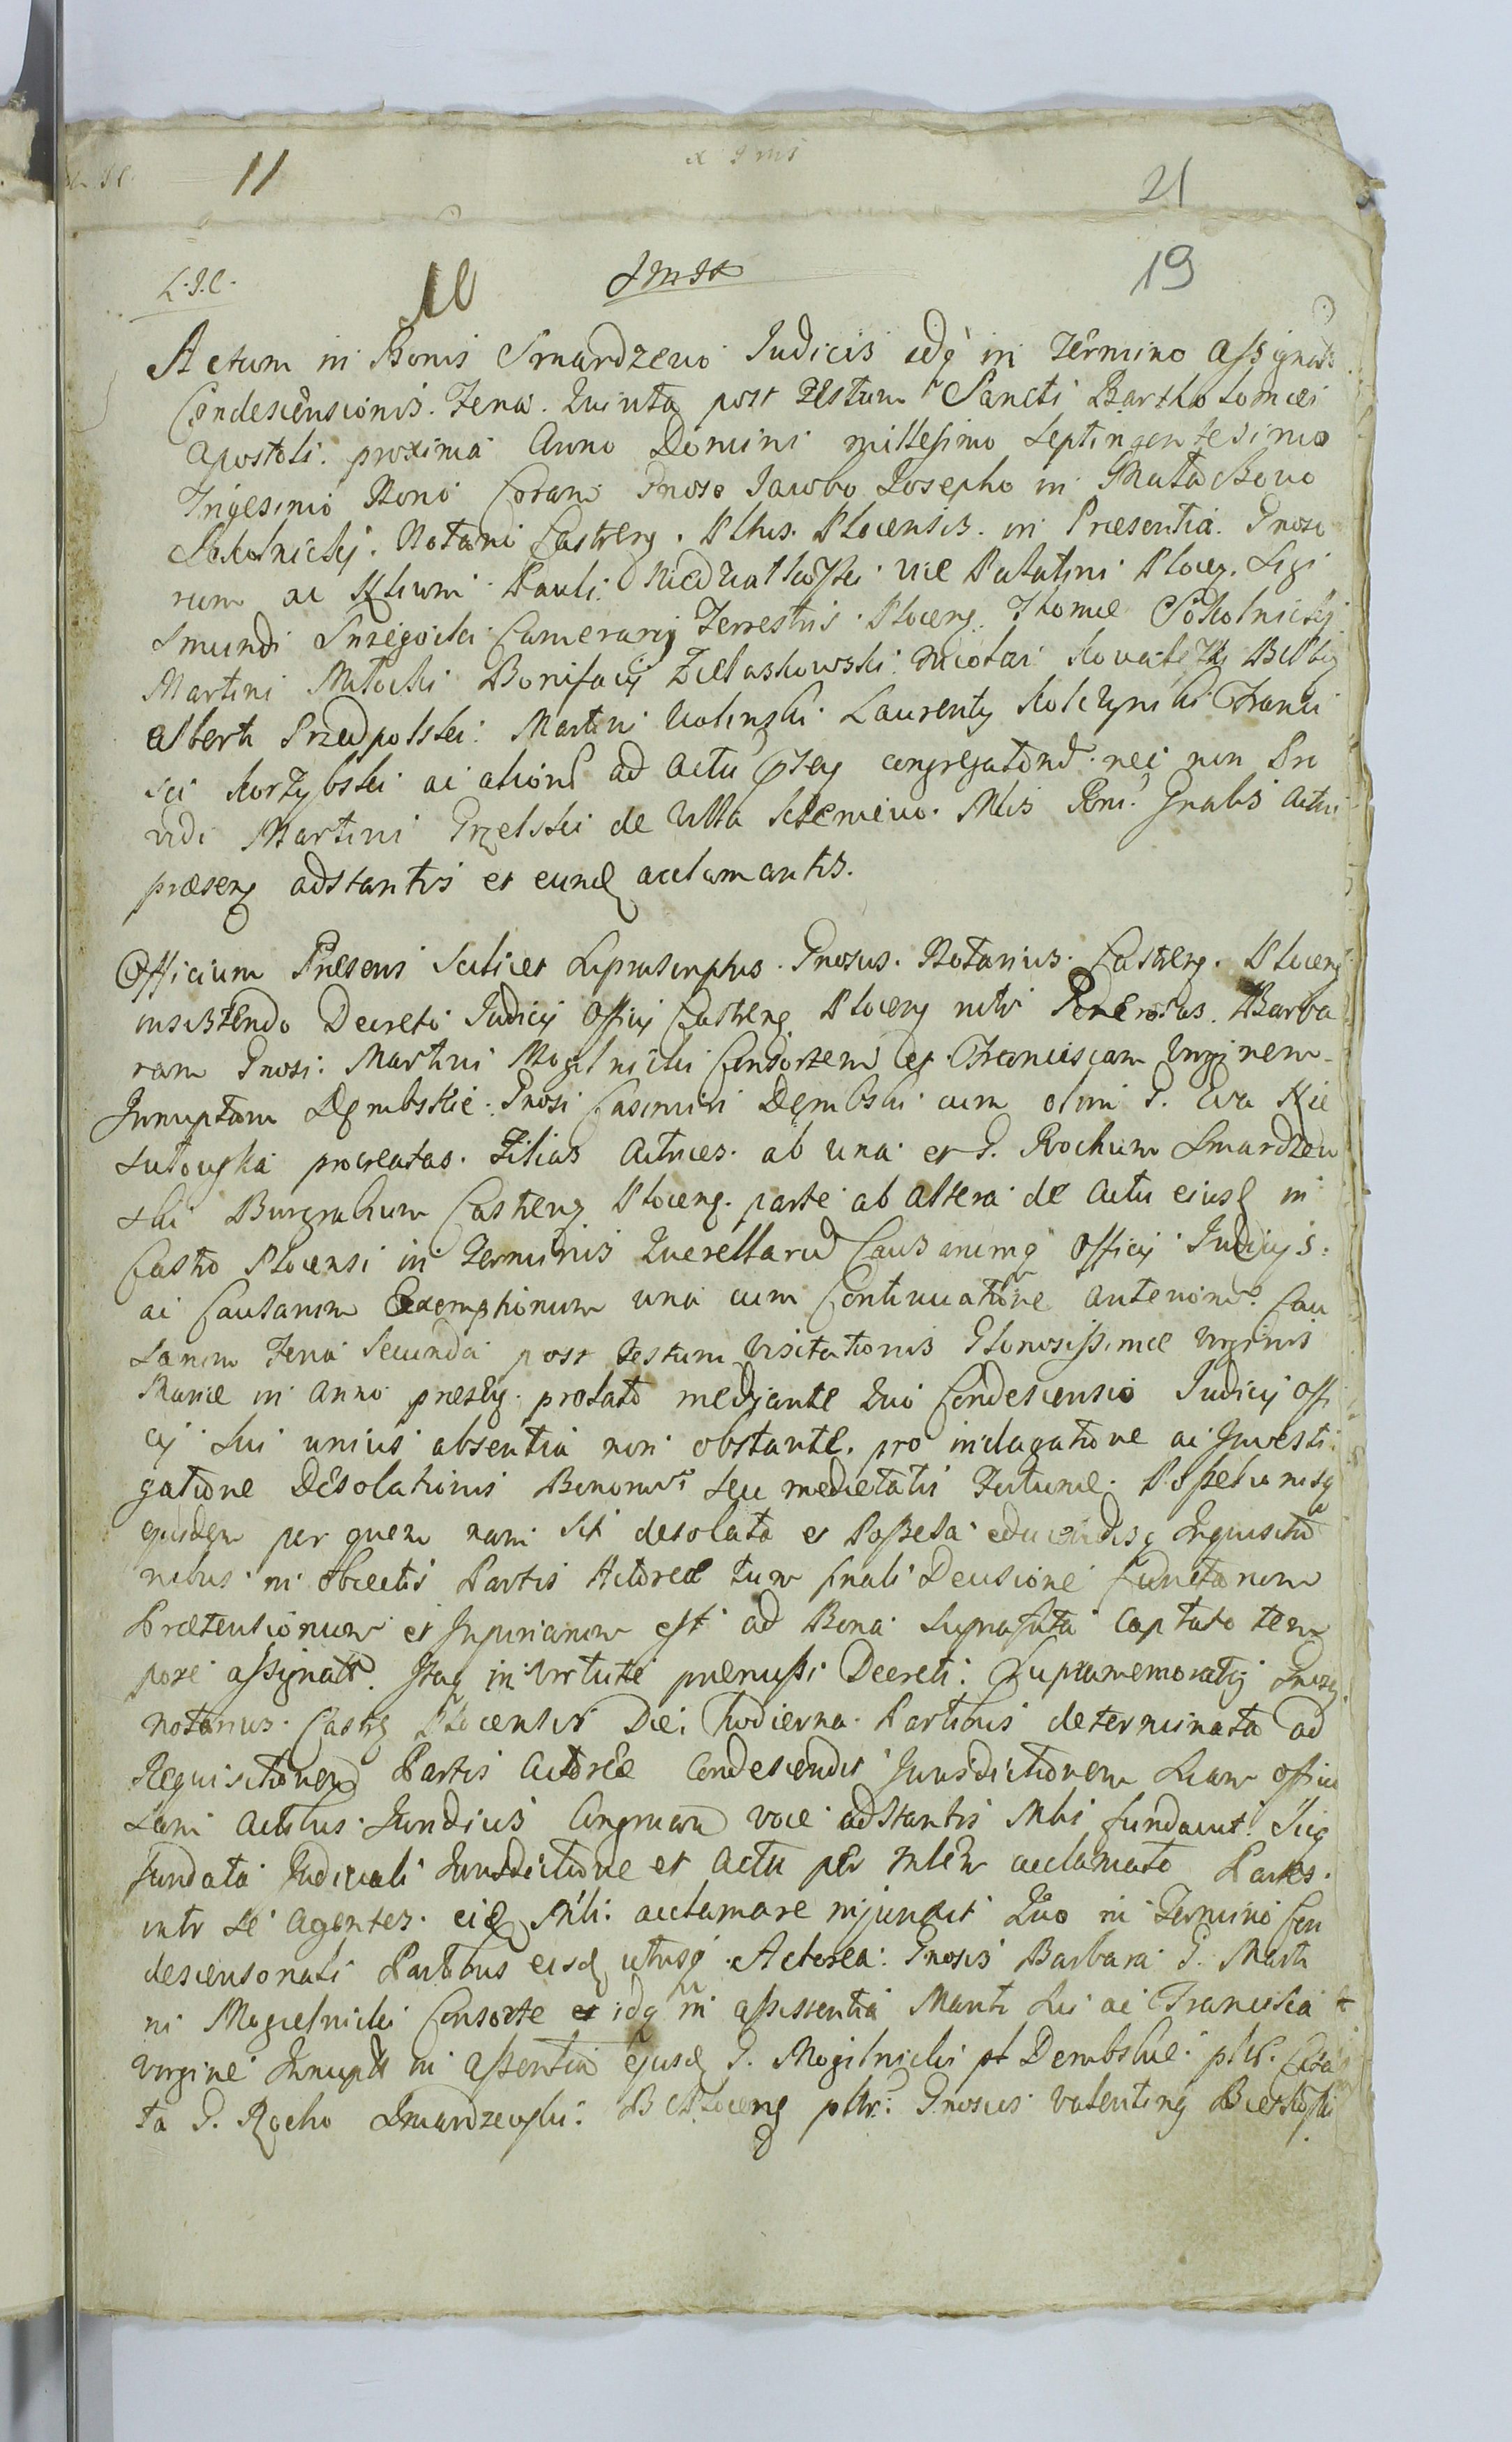 11
21
L.J.C.
10
19
Actum in Bonis Smardzewo Judicis idq in Termino assignato
Condescensionis. Feria. Quinta post Festum Sancti Bartholomaei
Apostoli. proxima Anno Domini millesimo Septingentesimo
Trigesimo Nono Coram Gnoso Jacobo Josepho in Mała
Sokolnicky. Notario Castren. Plocensis. in Praesentia. Gnoso
rum ac Pauli. vice Palatini Plocen. Sigi
smundi Camerarij Terrestris. Plocen. Thomae Sokolnicky
Martini Bonifacij Zielaskowski. Nicolai
Alberti Martini Wolinski. Laurenty Franci
sci ac aliorum ad actum congregatorum. nec non Pro
vidi Martini de Villa Mlis Gnalis actui
praesen adstantis et eund acclamantis.
Officium Praesens Scilicet Suprascriptus. Gnosus. Notarius. Castren. Plocen
insistendo Decreto Judicij Officij Castren Plocen intr Generosas. Barba
ram Gnosi. Martini Mogilnicki Consortem et Franciscam Virginem
Innuptam Dembskie. Gnosi Casimiri Dembski cum olim G. Eva Nie
sułowska procreatas. Filias Actrices. ab una et G. Rochum Smardzew
ski Burgrabium Castren Plocen. parte ab altera de actu eiusd in
Castro Plocensi in Terminis Querellarum Causarumq Officij Judicijs.
ac Causarum Exemptionum una cum Continuatione anteriorum. Cau
sarum Feria Secunda post Festum Visitationis Gloriosissimae Virginis
Mariae in anno praesen. prolato mediante quo Condescensio Judicij Offi
cij Sui unius absentia non obstante. pro indagatione ac Investi
gatione Desolationis Bonorum seu medietatis Fortunae. Possessionisq
ejusdem per quem nam sit desolata et Possessa educendisq Inquisitio
nibus in objectis Partis Actoreae tum finali Decisione Cunctarum
Praetensionum et Injuriarum est ad Bona Suprascripta captato tem
pore assignatt. Itaq in virtute praemissi Decreti. Supramemoratij Gnosus
notarius. Castren Plocensis Die hodierna. Partibus determinata ad
Requisitionem Partis Actoreae Condescendit Jurisdictionem Suam Officio
sam actibus Juridicis Congruam voce adstantis Mlis fundavit. Sicq
fundata Judiciali Jurisdictione et actu per Mlem acclamato Partes.
intr se agentes. eid Mli. acclamare injunxit Quo in Termino Con
descensionali Partibus eisd utrisq. Actorea. Gnosis Barbara G. Marti
ni Mogielnicki Consorte et idq in assistentia Mariti Sui ac Francisca
Virgine Innupta in assentia ejusd G. Mogilnicki pt Dembskie. pltr. Cita
ta G. Rocho Smardzewski. B Plocen pltr. Gnosus Valentinq